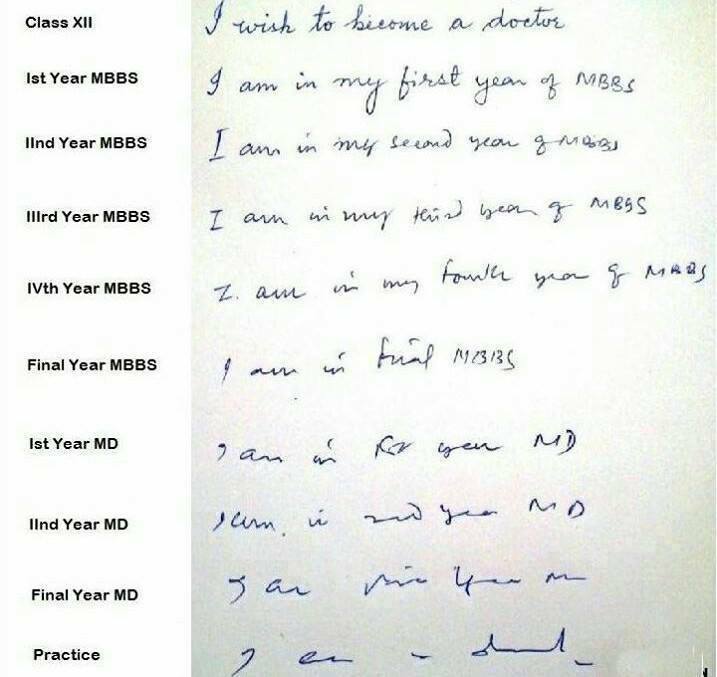 Class XII I wish to become a doctor
Ist Year MBBS I am in my first year of MBBS
IInd Year MBBS I am in my second year of MBBS
IIIrd Year MBBS I am in my third year of MBBS
IVth Year MBBS I. am in my fourth year of MBBS
Final Year MBBS I am in final MBBS
Ist Year MD I am in Ist year MD
IInd Year MD I am. in 2nd year MD
Final Year MD I am Year
Practice I am